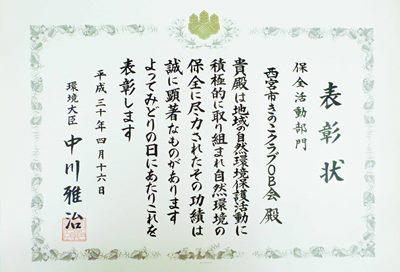 表彰状
保全活動部門
西宮市きのこクラブOB会 殿
貴殿は地域の自然環境保護活動に
積極的に取り組まれ自然環境の
保全に尽力されたその功績は
誠に顕著なものがあります
よってみどりの日にあたりこれを
表彰します
平成三十年四月十六日
環境大臣 中川雅治